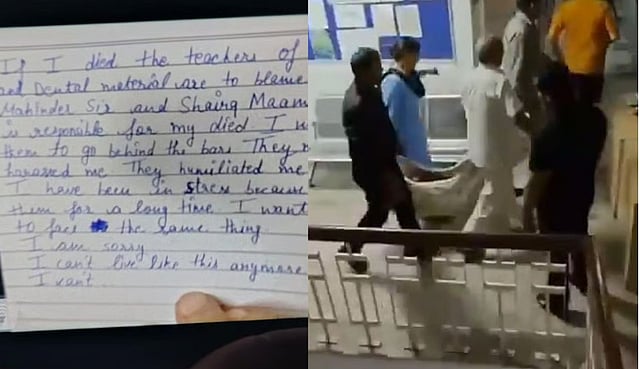 If I died the teachers of
and Dental material are to blame
Mahinder Sir and Shairg Maam
is responsible for my died I w
them to go behind the bars They
harassed me. They humiliated me
I have been in stress because
them for a long time. I want
to face the same thing
I am sorry
I can't live like this anymore
I can't